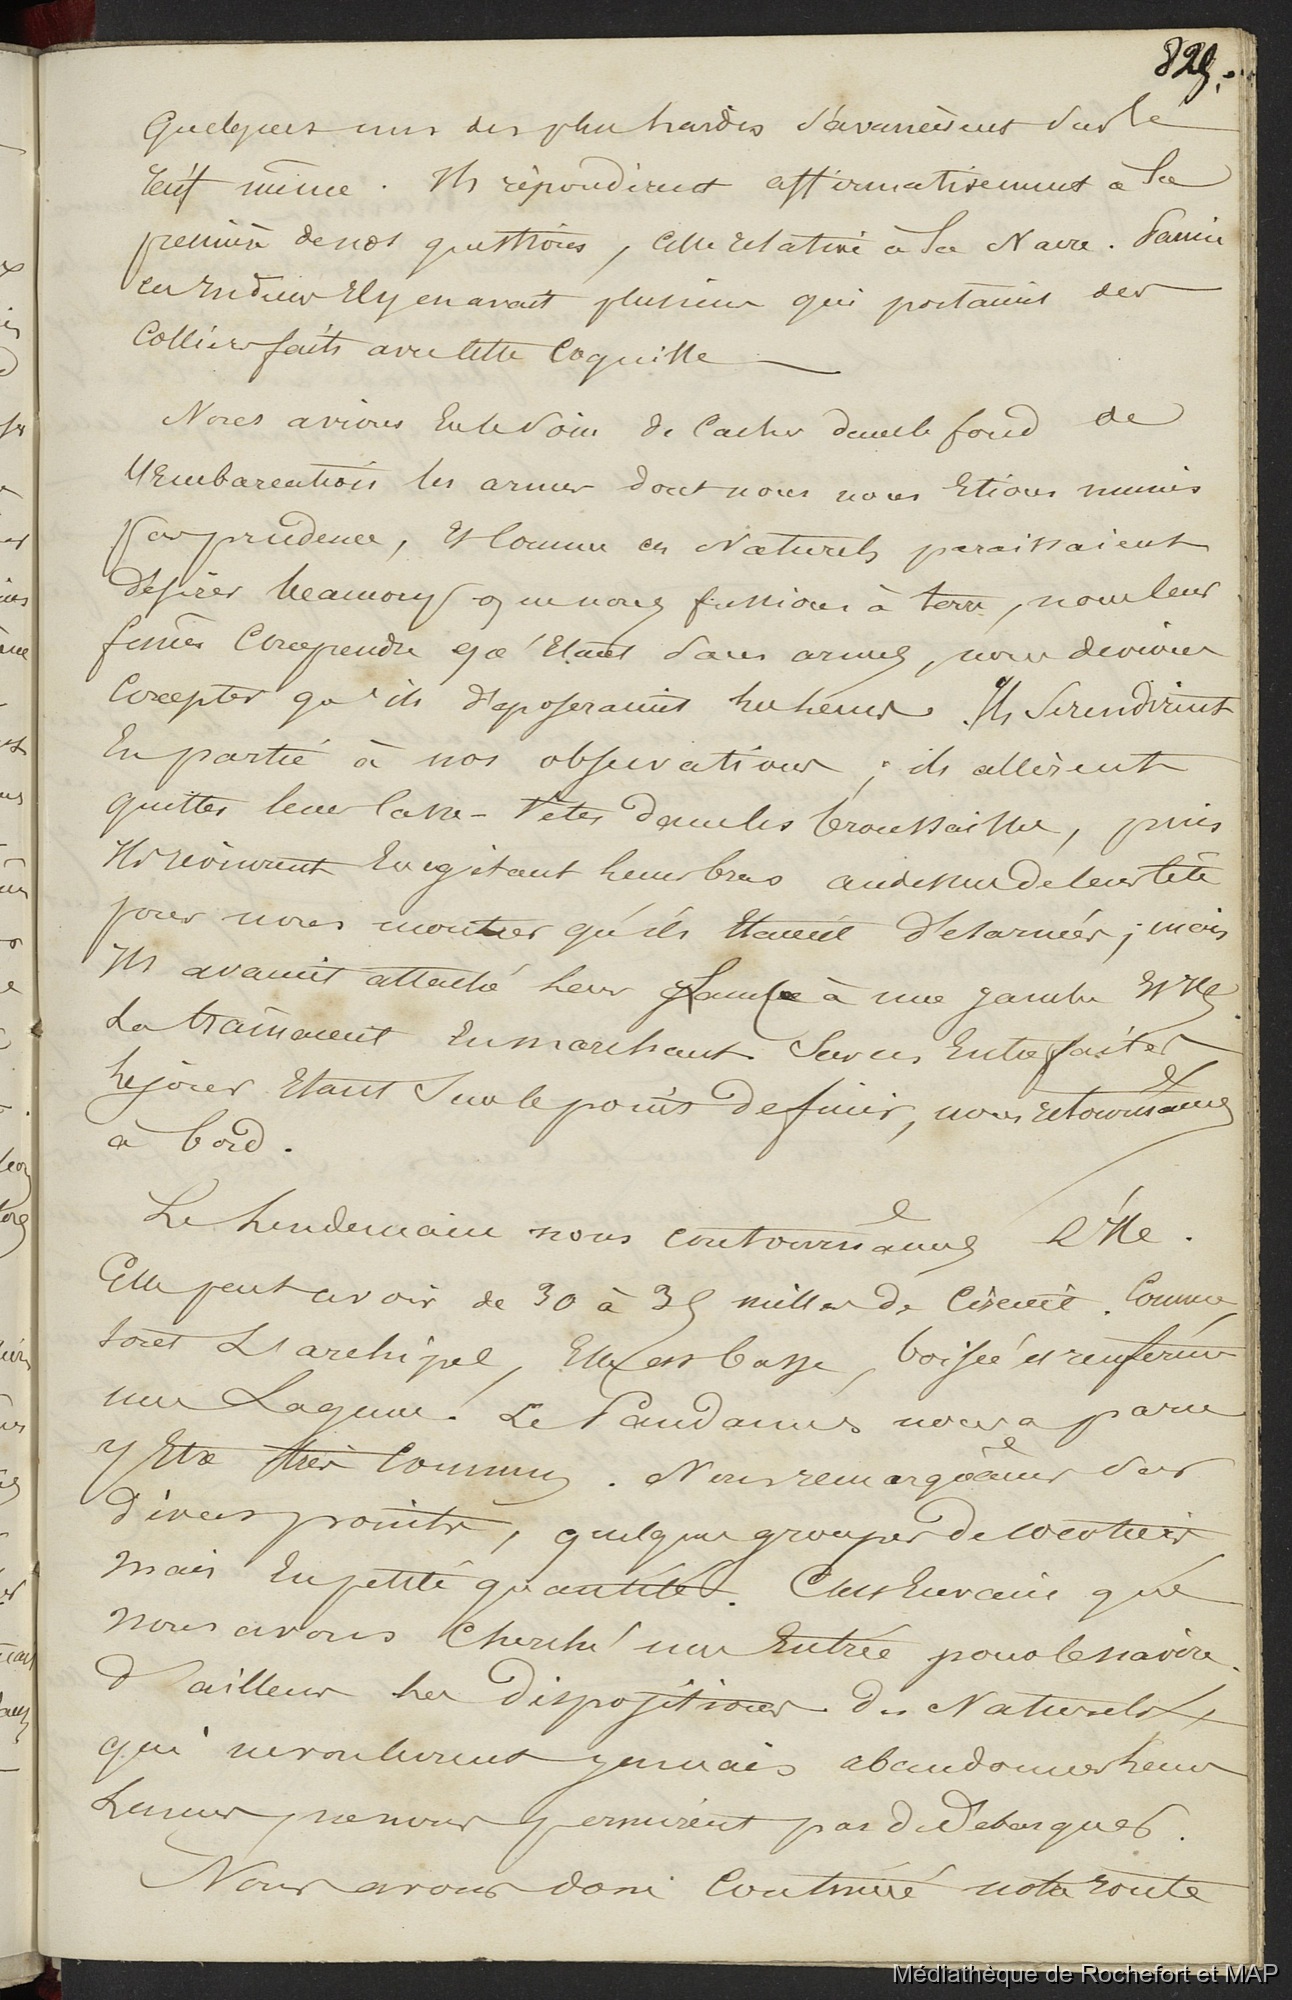 829.
Quelques uns des plus hardis s'avancèrent sur le
récif même. Ils répondirent affirmativement à la
première de nos questions, celle relative à la Nacre. Parmi
ces Indiens Il y en avait plusieurs qui portaient des
Colliers faits avec cette Coquille
Nous avions Eu le soin de Cacher dans le fond de
l'Embarcation les armes dont nous nous Etions munis
par prudence, Et Comme ces Naturels paraissaient
désirer beaucoup que nous fussions à terre, nous leur
fimes Comprendre qu'Etant sans armes, nous devions
Compter qu'ils déposeraient les leurs. Ils se rendirent
En partie à nos observations ; ils allèrent
quitter leur Casse-têtes dans les broussailles, puis
Ils revinrent En agitant leurs bras au dessus de leur tête
pour nous montrer qu'ils Etaient désarmés ; mais
Ils avaient attaché leur lance à une jambe Et Ils
la trainaient En marchant. Sur ces Entrefaites
le jour Etant sur le point de finir, nous retournames
à bord.
Le lendemain nous contournames l'Ile.
Elle peut avoir de 30 à 35 milles de Circuit. Comme
tout l'archipel, Elle est basse, boisée et renferme
une Lagune. Le Pandanus nous a paru
y Etre très Commun. Nous remarquames sur
divers points, quelques groupes de cocotiers
mais En petite quantité. C'est En vain que
nous avons Cherché une Entrée pour le navire.
D'ailleurs les dispositions des Naturels
qui ne voulurent jamais abandonner leurs
Lances, ne nous permirent pas de Débarquer.
Nous avons donc Continué notre route
Médiathèque de Rochefort et MAP